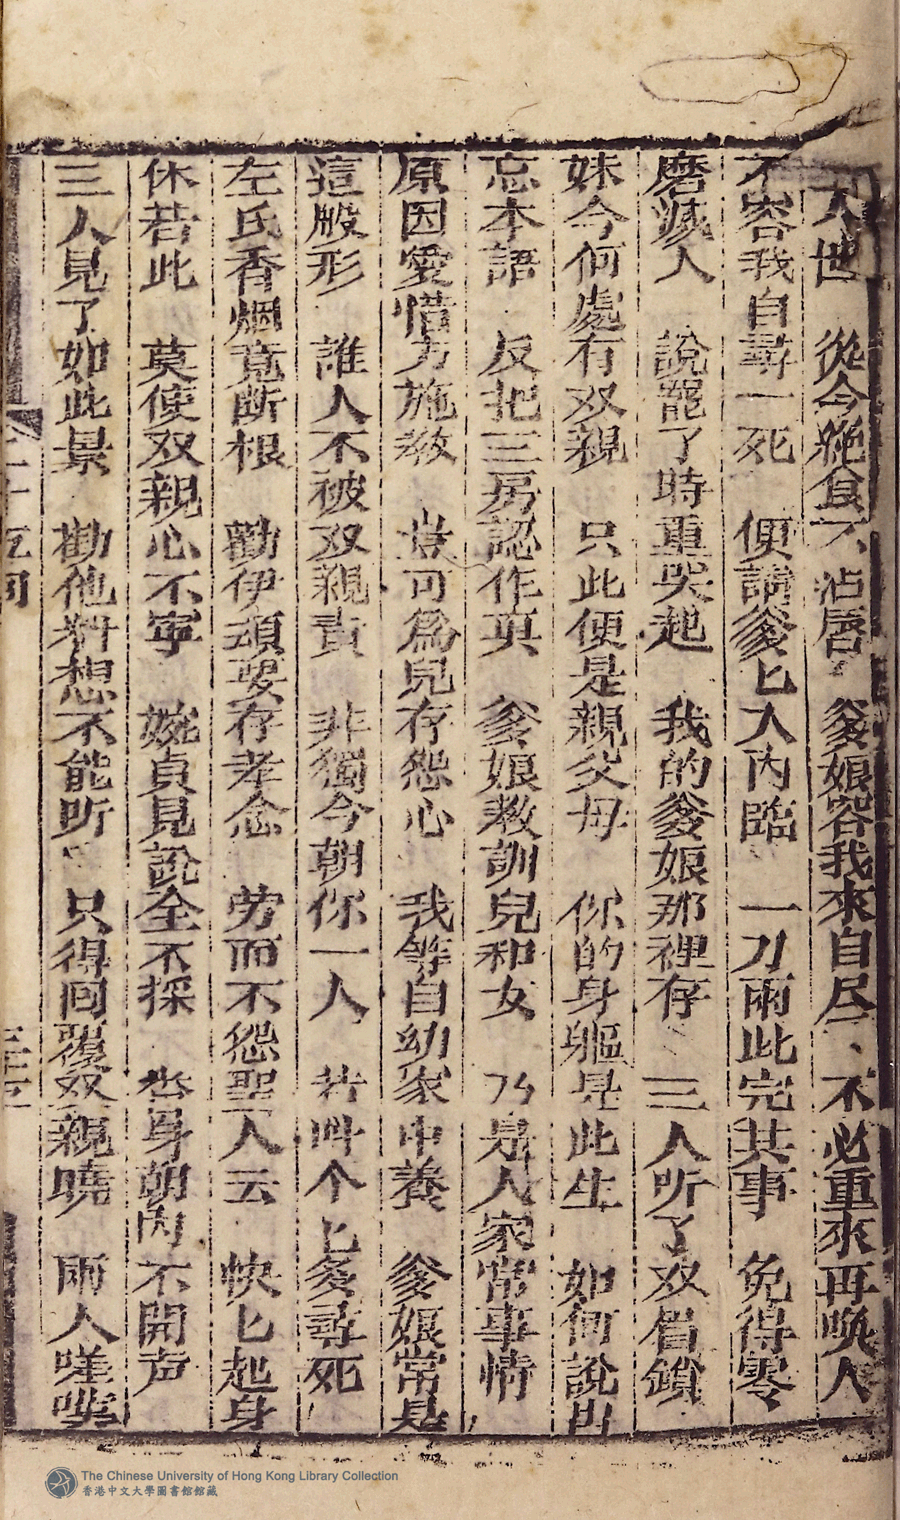 人世 從今絶食不沾唇 爹娘容我來自尽 不必重來再喚人
不容我自尋一死 便請爹匕入內臨 一刀兩此完其事 免得零
磨滅人 說罷了時重哭起 我的爹娘那裡存 三人听了双眉鎖
妹今何處有双親 只此便是親父母 你的身軀是此生 如何說出
忘本語 反把三房認作真 爹娘教訓兒和女 乃是人家常事情
原因愛惜方施教 豈可為兒存怨心 我等自幼家中養 爹娘常是
這般形 誰人不被双親責 非獨今朝你一人 若叫个匕多尋死
左氏香烟竟断根 勸伊頑要存孝念 劳而不怨聖人云 快匕起身
休若此 莫使双親心不寧 婉貞見說全不採 杳身朝內不開声
三人見了如此景 勸他料想不能听 只得回覆双親曉 兩人嗟嘆
The Chinese University of Hong Kong Library Collection
香港中文大學圖書館館藏